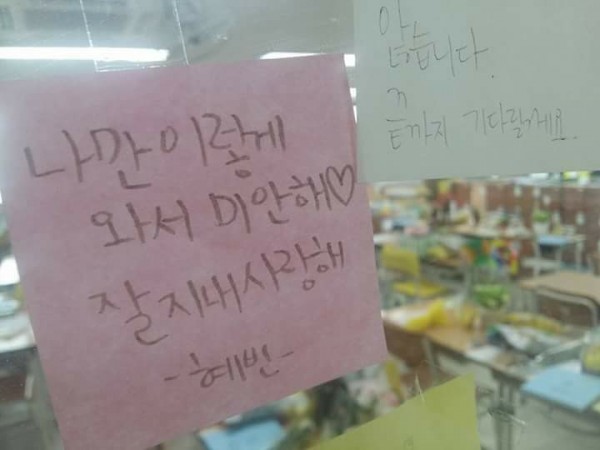 나만 이렇게
와서 미안해♡
잘지내 사랑해
-혜빈-
않습니다.
끝까지 기다릴게요.